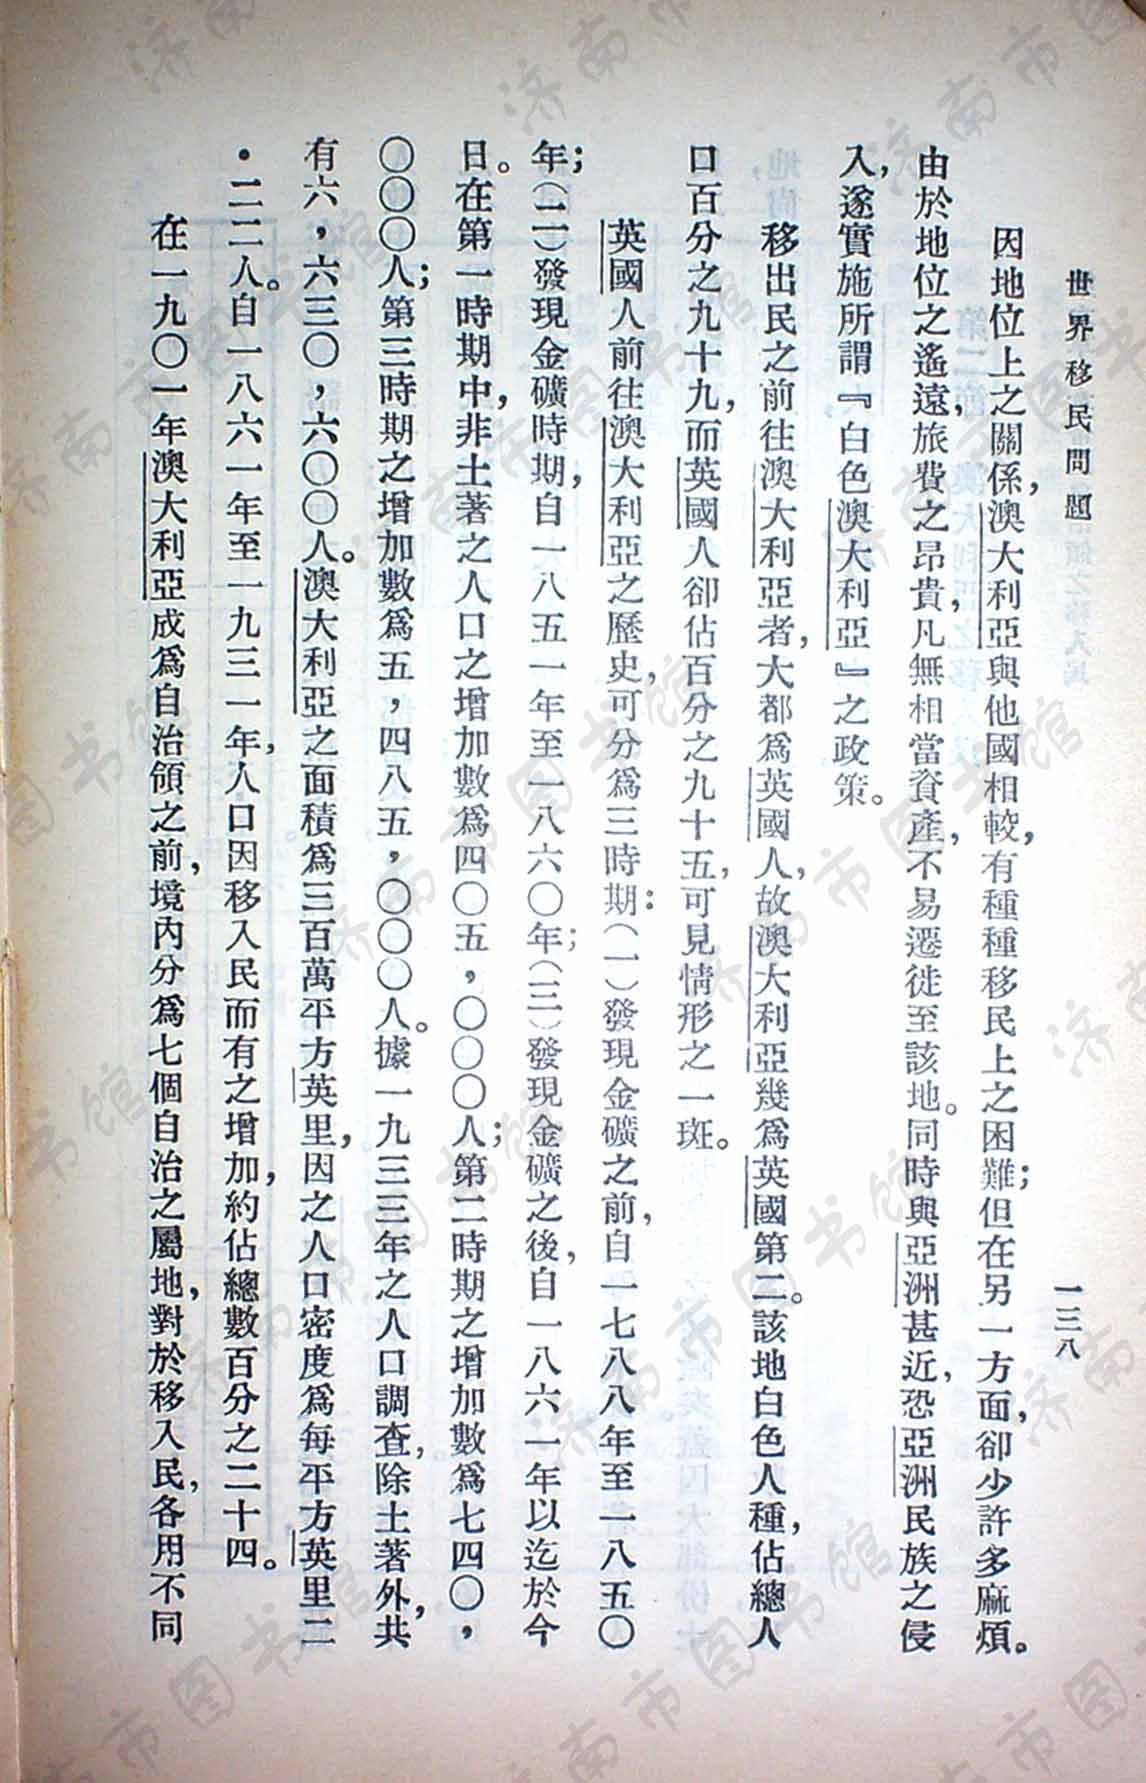 世界移民問題
一三八
因地位上之關係，澳大利亞與他國相較，有種種移民上之困難；但在另一方面，卻少許多麻煩。
由於地位之遙遠，旅費之昂貴，凡無相當資產，不易遷徙至該地。同時與亞洲甚近，恐亞洲民族之侵
入，遂實施所謂『白色澳大利亞』之政策。
移出民之前往澳大利亞者，大都爲英國人，故澳大利亞幾爲英國第二。該地白色人種，佔總人
口百分之九十九，而英國人卻佔百分之九十五，可見情形之一斑。
英國人前往澳大利亞之歷史，可分爲三時期：（一）發現金礦之前，自一七八八年至一八五〇
年；（二）發現金礦時期，自一八五一年至一八六〇年；（三）發現金礦之後，自一八六一年以迄於今
日。在第一時期中，非土著之人口之增加數爲四〇五，〇〇〇人；第二時期之增加數爲七四〇，
〇〇〇人；第三時期之增加數爲五，四八五，〇〇〇人。據一九三三年之人口調查，除土著外，共
有六，六三〇，六〇〇人。澳大利亞之面積爲三百萬平方英里，因之人口密度爲每平方英里二
・二二人。自一八六一年至一九三一年，人口因移入民而有之增加，約佔總數百分之二十四。
在一九〇一年澳大利亞成爲自治領之前，境內分爲七個自治之屬地，對於移入民，各用不同
济南市图书馆